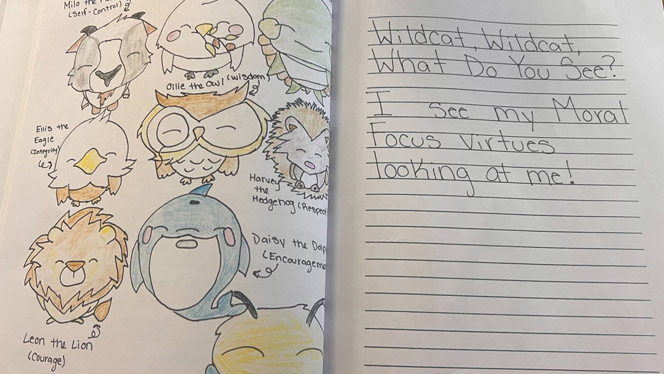 Milo the
(Self-Control)
Ollie the Owl (Wisdom)
Ellis the
Eagle
(Integrity)
Harve
the
Hedgehog (Respect
Daisy the Dolp
(Encourageme
Leon the Lion
(Courage)
Wildcat, Wildcat,
What Do You See?
I see my Moral
Focus Virtues
looking at me!